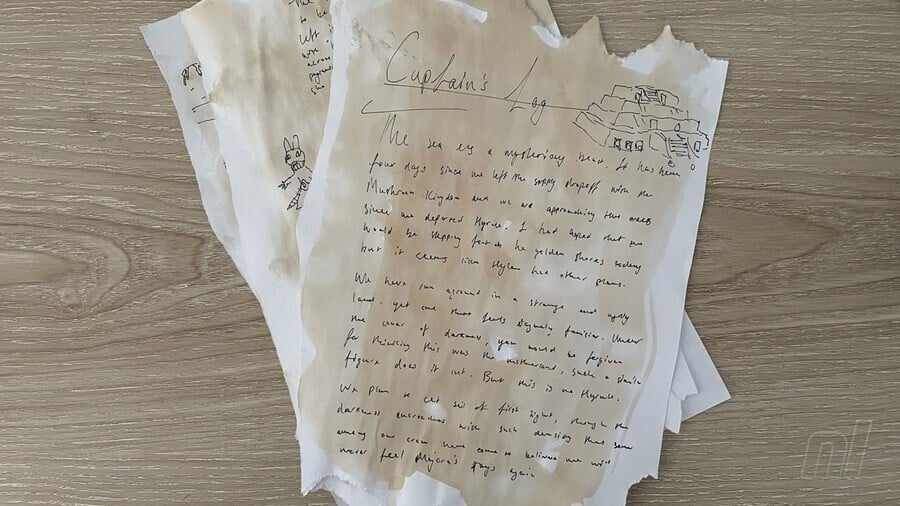 The
to be
left
across
Captain's Log
The sea is a mysterious beast. It has been
four days since we left the supply dropoff with the
Mushroom Kingdom and we are approaching three weeks
since we departed Hyrule. I had hoped that we
would be stepping foot on the golden shores today
but it seems like Hylia has other plans.
We have run aground in a strange and ugly
land, yet one that feels vaguely familiar. Under
the cover of darkness, you would be forgiven
for thinking this was the motherland, such a similar
figure does it cut. But this is no Hyrule.
We plan to set sail at first light, though the
darkness encroaches with such density that some
among our crew have come to believe we will
never feel Majora's rays again
nl